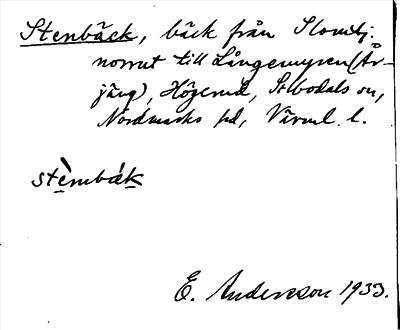 Stenbäck, bäck från Slomtj.
norrut till Långemyren (År-
jäng), Högerud, St bodals sn,
Nordmarks hd, Värml. l.
stèmbäk
E. Andersson 1933.